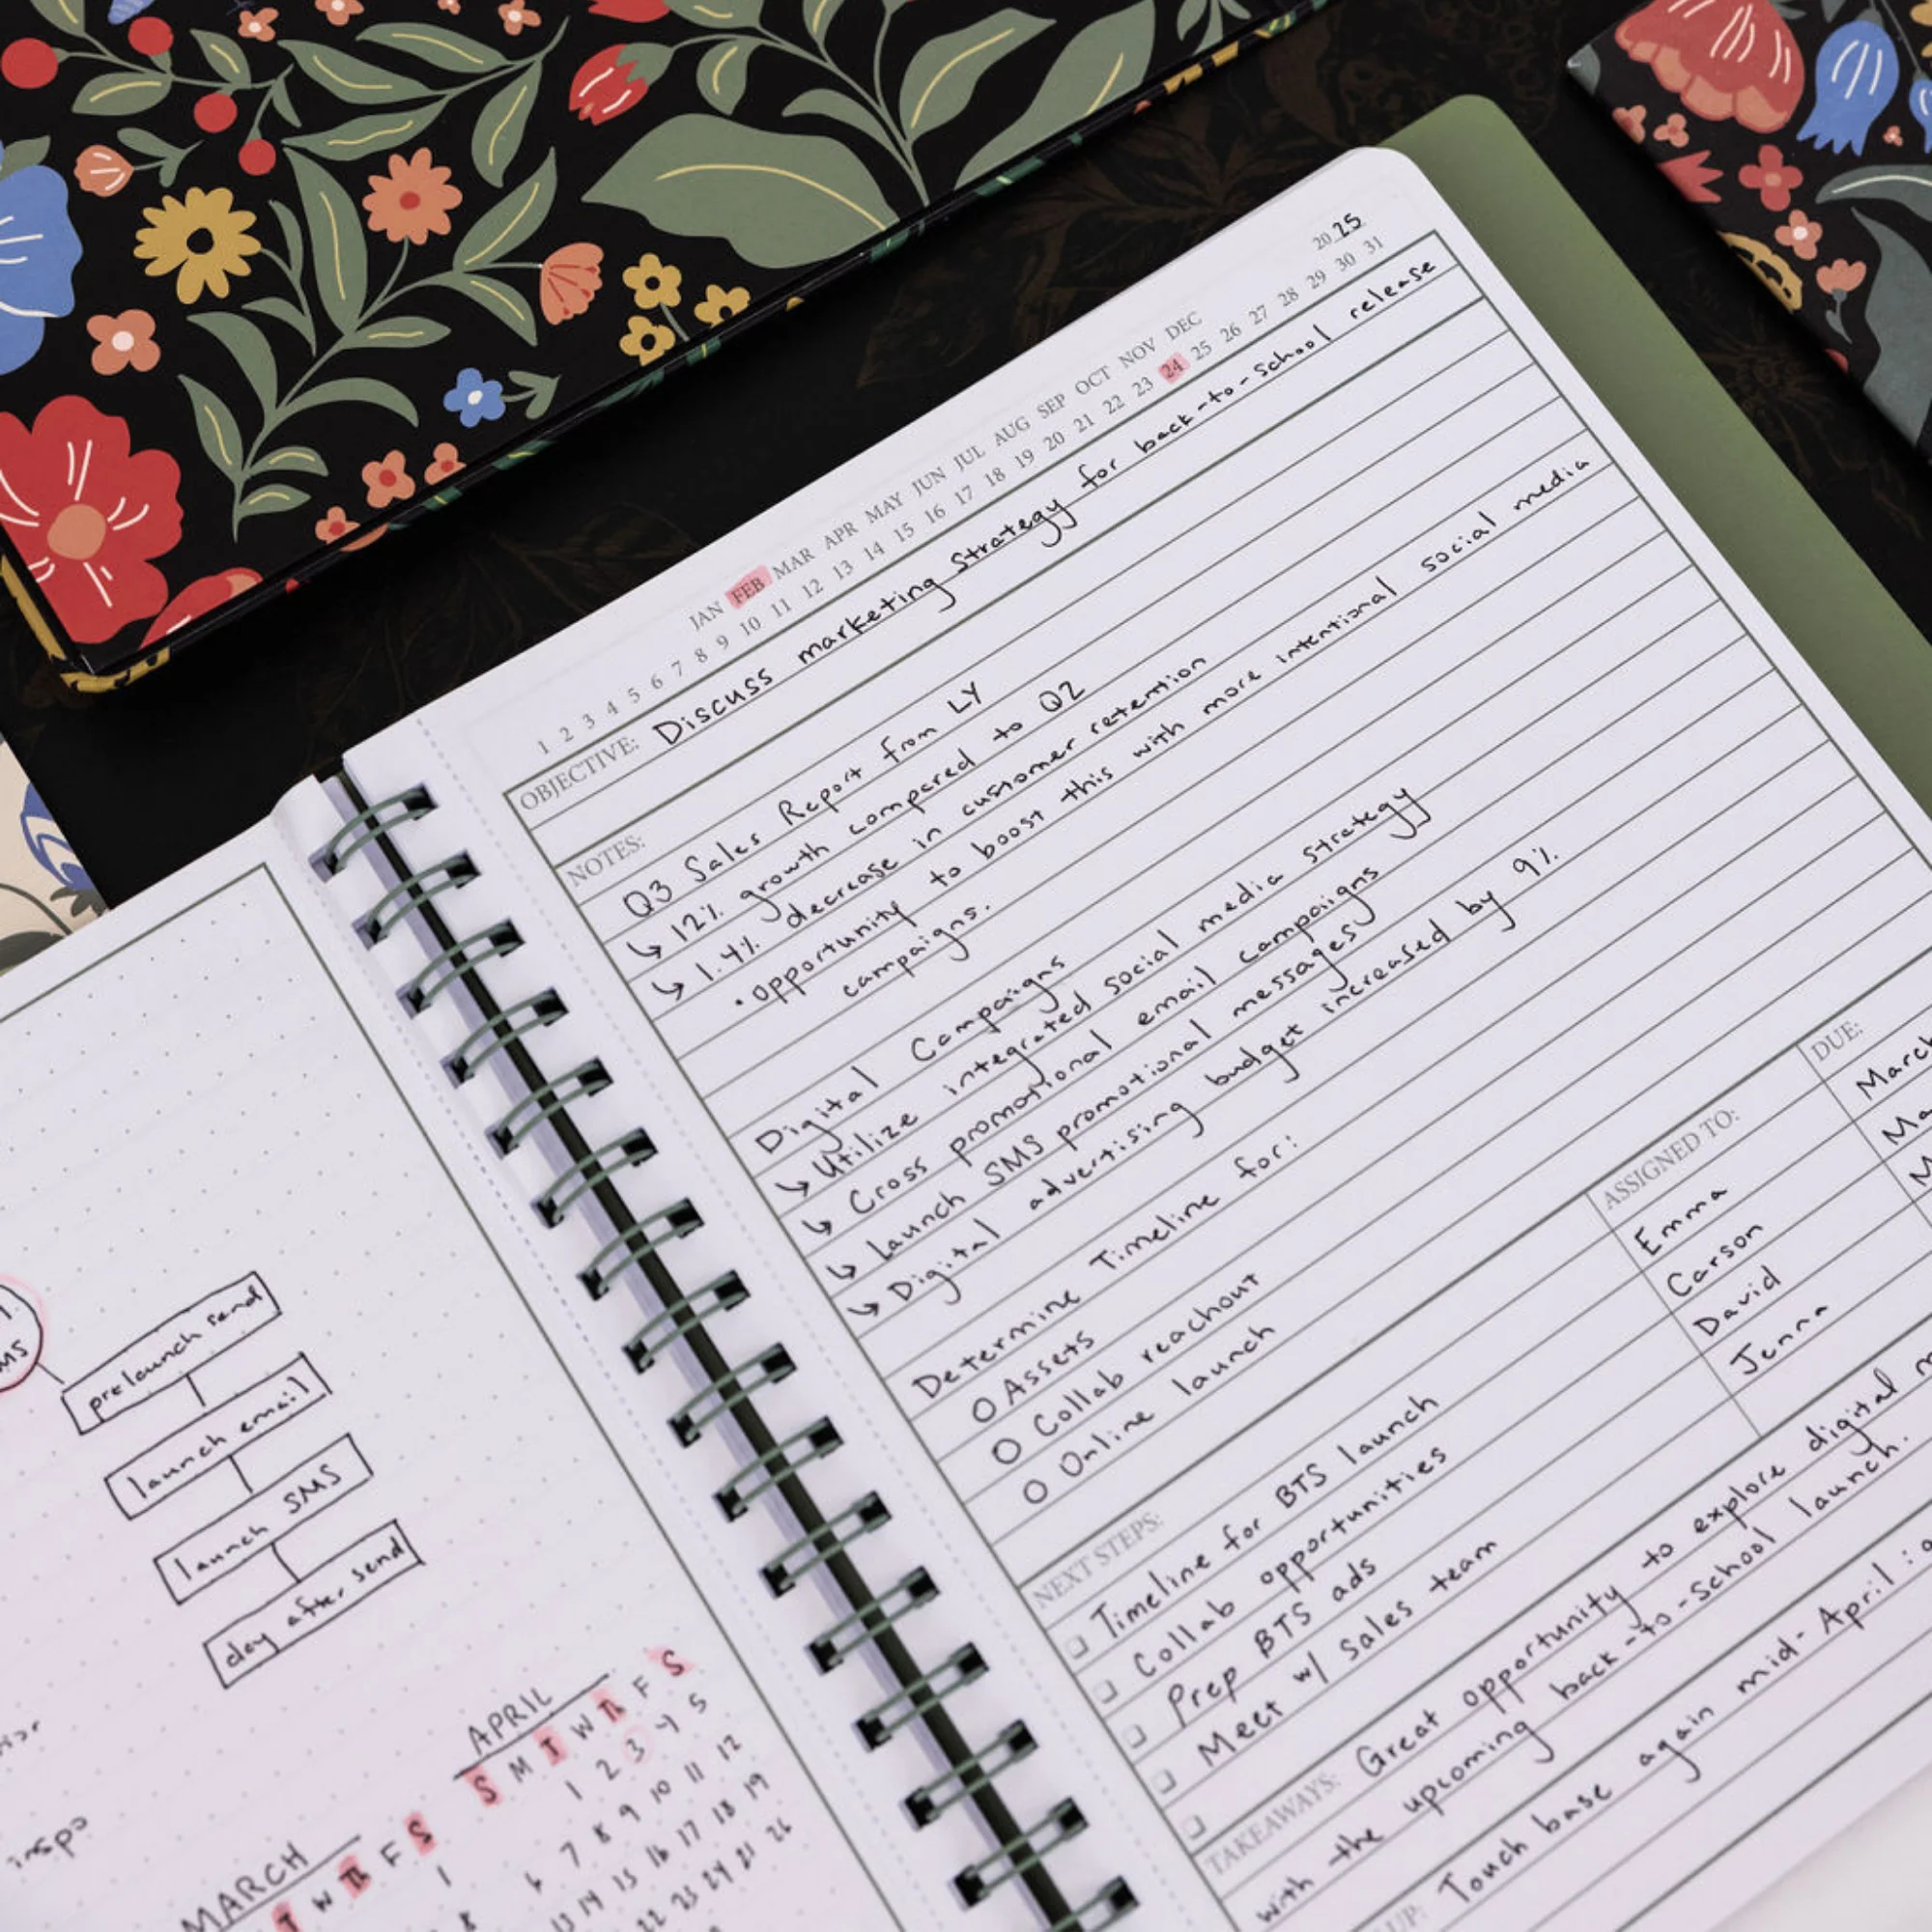 2025
JAN FEB MAR APR MAY JUN JUL AUG SEP OCT NOV DEC
1 2 3 4 5 6 7 8 9 10 11 12 13 14 15 16 17 18 19 20 21 22 23 24 25 26 27 28 29 30 31
OBJECTIVE: Discuss marketing strategy for back-to-school release
NOTES:
Q3 Sales Report from LY
↳ 12% growth compared to Q2
↳ 1.4% decrease in customer retention
• opportunity to boost this with more intentional social media
campaigns.
Digital Campaigns
↳ Utilize integrated social media strategy
↳ Cross promotional email campaigns
↳ Launch SMS promotional messages
↳ Digital advertising budget increased by 9%
Determine Timeline for:
O Assets
O Collab reachout
O Online launch
NEXT STEPS: ASSIGNED TO: DUE:
Timeline for BTS launch Emma March
Collab opportunities Carson
Prep BTS ads David
Meet w/ sales team Jenna
TAKEAWAYS: Great opportunity to explore digital
with the upcoming back-to-school launch.
UP: Touch base again mid-April :
prelaunch send
launch email
launch SMS
day after send
inspo
APRIL
S M T W Th F S
1 2 3 4 5
6 7 8 9 10 11 12
13 14 15 16 17 18 19
22 23 24 25 26
MARCH
T W Th F S
1
8